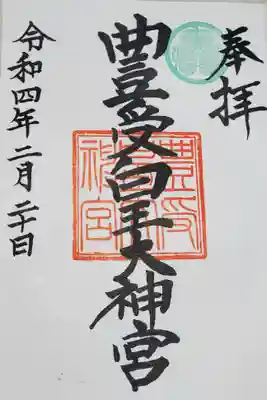 奉拝
豊受皇大神宮
令和四年二月二十日
豊受
神宮